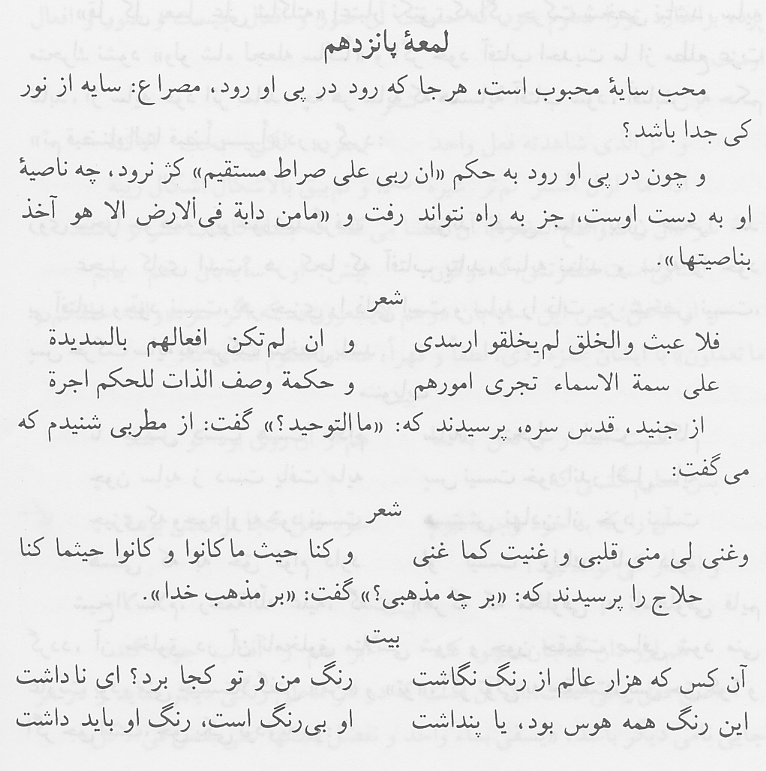 لمعهٔ پانزدهم
محب سایهٔ محبوب است، هرجا که رود در پی او رود، مصراع: سایه از نور
کی جدا باشد؟
و چون در پی او رود به حکم «ان ربی علی صراط مستقیم» کژ نرود، چه ناصیهٔ
او به دست اوست، جز به راه نتواند رفت و «مامن دابة فی‌الارض الا هو آخذ
بناصیتها».
شعر
فلا عبث والخلق لم‌یخلقوا سدی و ان لم‌تکن افعالهم بالسدیدة
علی سمة الاسماء تجری امورهم و حکمة وصف الذات للحکم اجرة
از جنید، قدس سره، پرسیدند که: «ماالتوحید؟» گفت: از مطربی شنیدم که
می‌گفت:
شعر
وغنی لی منی قلبی و غنیت کما غنی و کنا حیث ماکانوا و کانوا حیثما کنا
حلاج را پرسیدند که: «بر چه مذهبی؟» گفت: «بر مذهب خدا».
بیت
آن کس که هزار عالم از رنگ نگاشت رنگ من و تو کجا برد؟ ای ناداشت
این رنگ همه هوس بود، یا پنداشت او بی‌رنگ است، رنگ او باید داشت